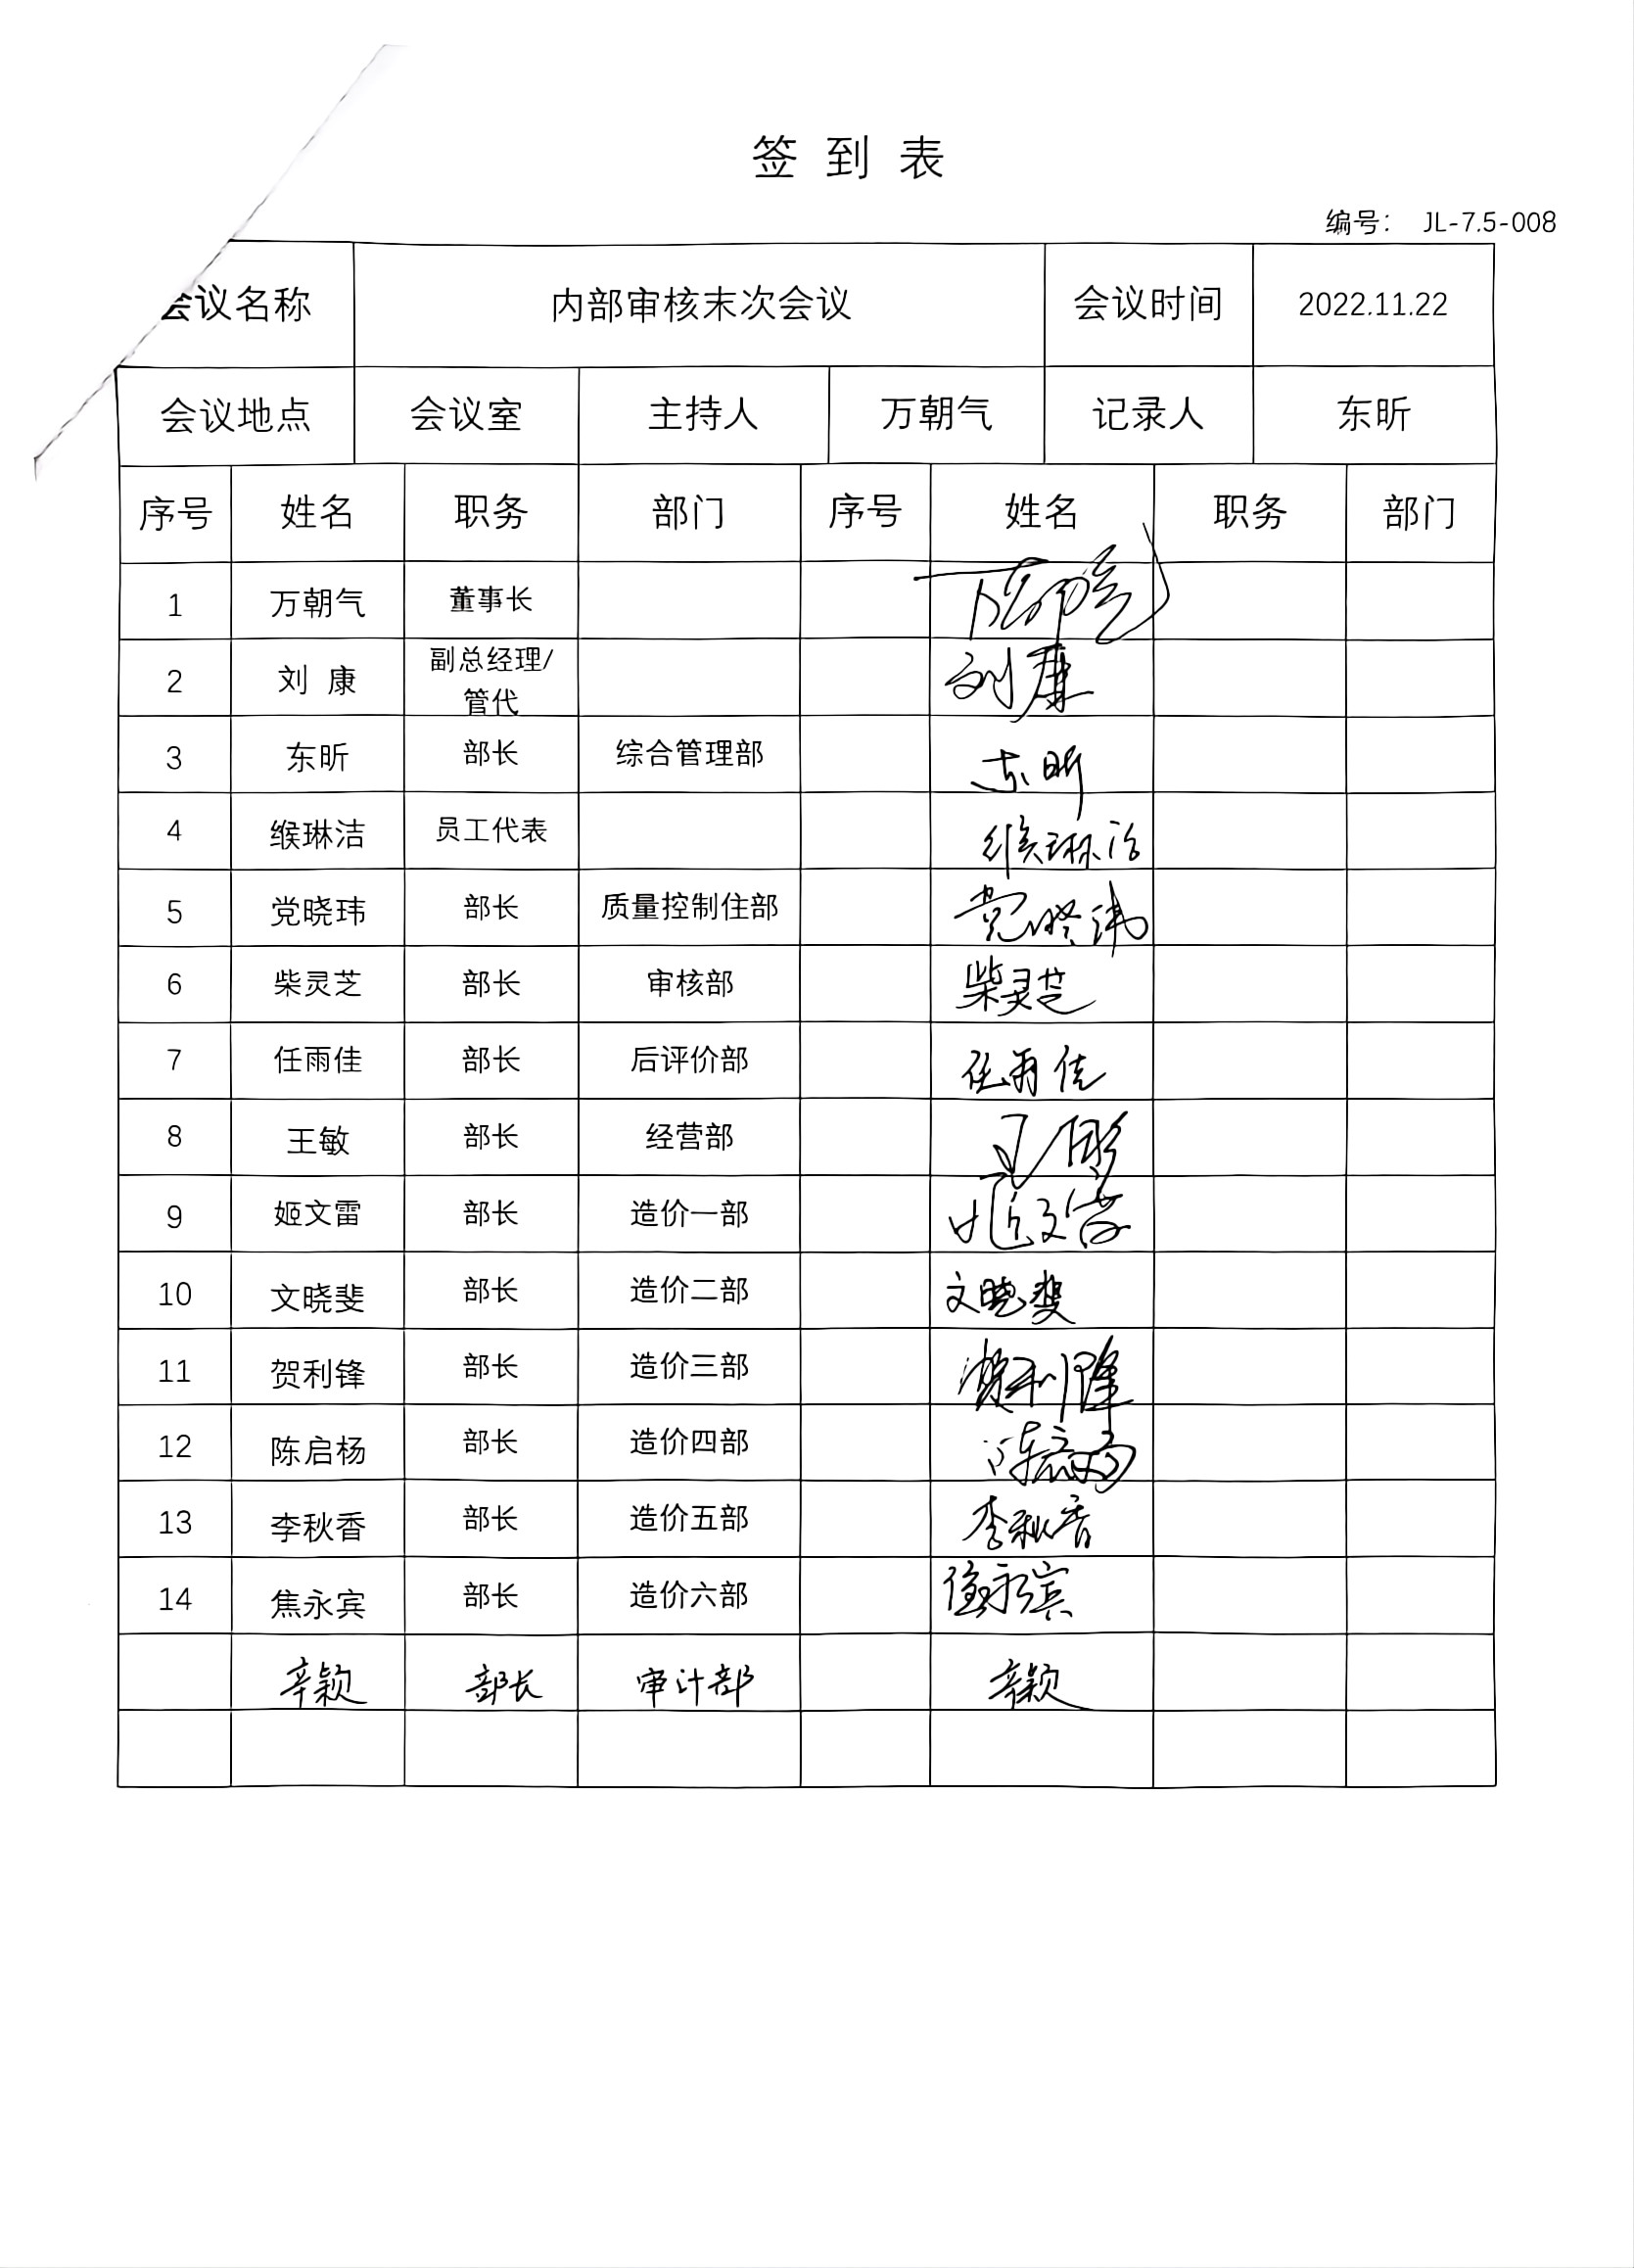 签到表
编号： JL-7.5-008
会议名称 内部审核末次会议 会议时间 2022.11.22
会议地点 会议室 主持人 万朝气 记录人 东昕
序号 姓名 职务 部门 序号 姓名 职务 部门
1 万朝气 董事长 万朝气
2 刘 康 副总经理/ 刘康
管代
3 东昕 部长 综合管理部 东昕
4 缑琳洁 员工代表 缑琳洁
5 党晓玮 部长 质量控制住部 党晓玮
6 柴灵芝 部长 审核部 柴灵芝
7 任雨佳 部长 后评价部 任雨佳
8 王敏 部长 经营部
9 姬文雷 部长 造价一部 姬文雷
10 文晓斐 部长 造价二部 文晓斐
11 贺利锋 部长 造价三部 贺利锋
12 陈启杨 部长 造价四部 陈启杨
13 李秋香 部长 造价五部 李秋香
14 焦永宾 部长 造价六部 焦永宾
辛颖 部长 审计部 辛颖